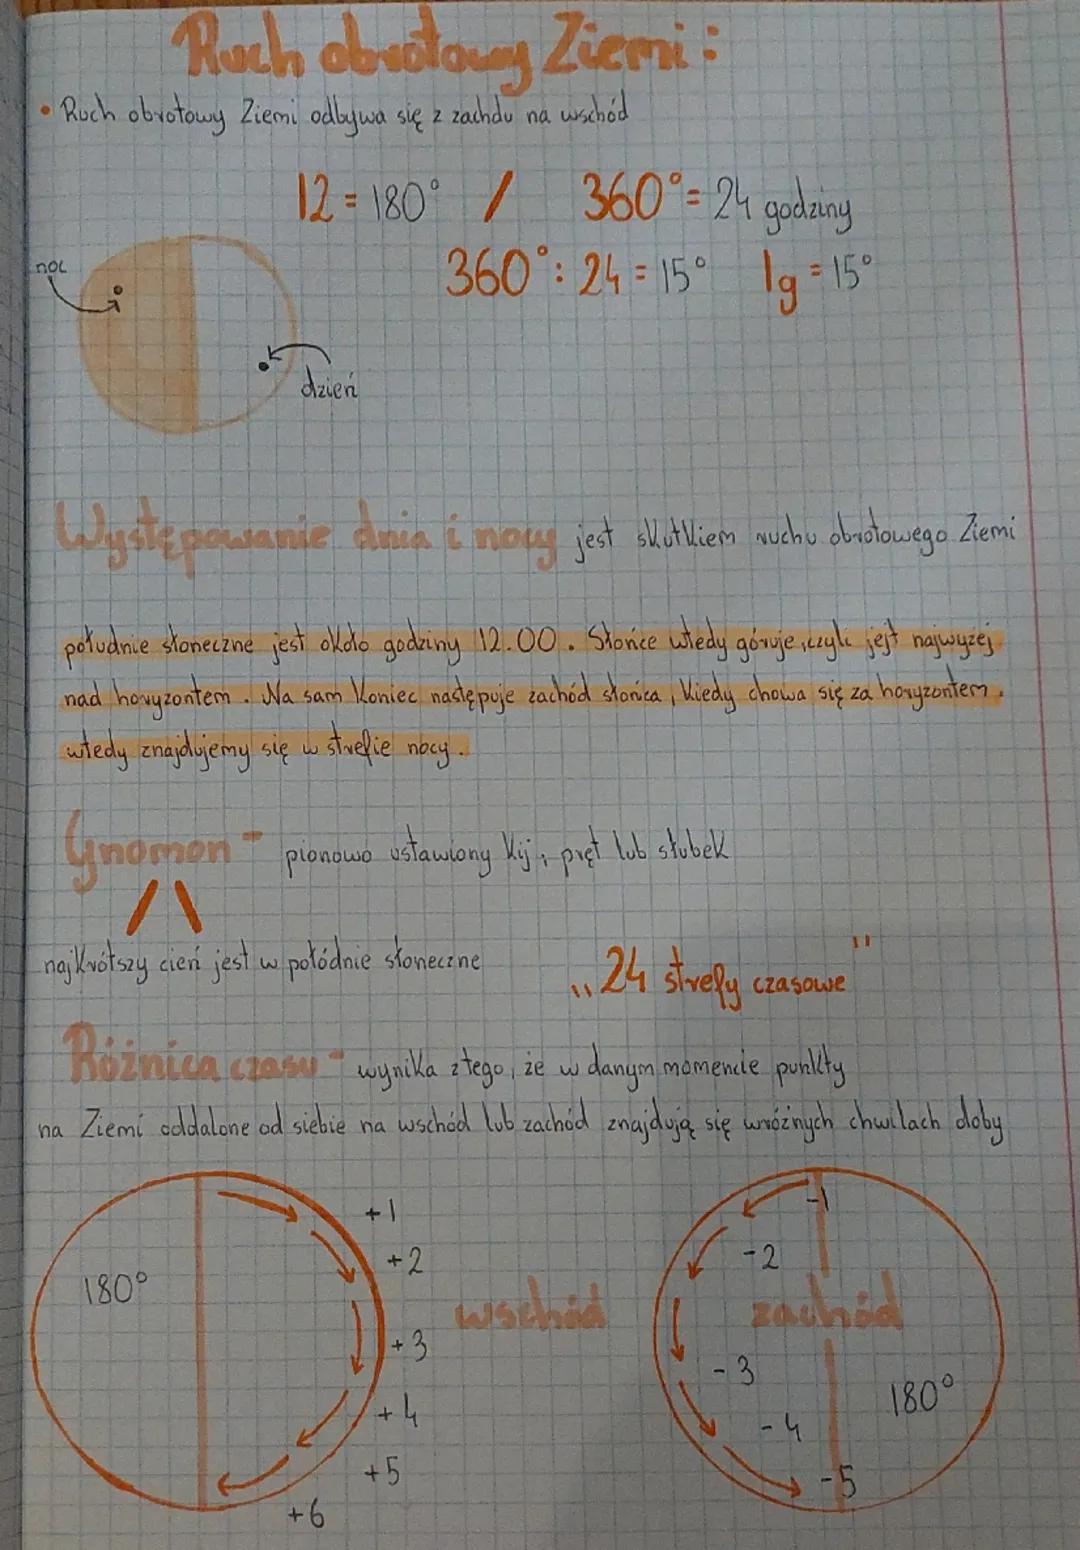 Ruch obrotowy Ziemi:
• Ruch obrotowy Ziemi odbywa się z zachdu na wschód
12 = 180° / 360° = 24 godziny
360° : 24 = 15° 1g = 15°
noc
dzień
Występowanie dnia i nocy jest skutkiem ruchu obrotowego Ziemi
południe słoneczne jest około godziny 12.00. Słońce wtedy góruje, czyli jejt najwyżej
nad horyzontem. Na sam koniec następuje zachód słońca, kiedy chowa się za horyzontem.
wtedy znajdujemy się w strefie nocy.
Gnomon - pionowo ustawiony kij, pręt lub słubek
najkrótszy cień jest w połódnie słoneczne
„24 strefy czasowe"
Różnica czasu - wynika z tego, że w danym momencie punkty
na Ziemi oddalone od siebie na wschód lub zachód znajdują się w różnych chwilach doby
180°
+1
+2
+3
+4
+5
+6
wschód
-1
-2
-3
-4
-5
zachód
180°